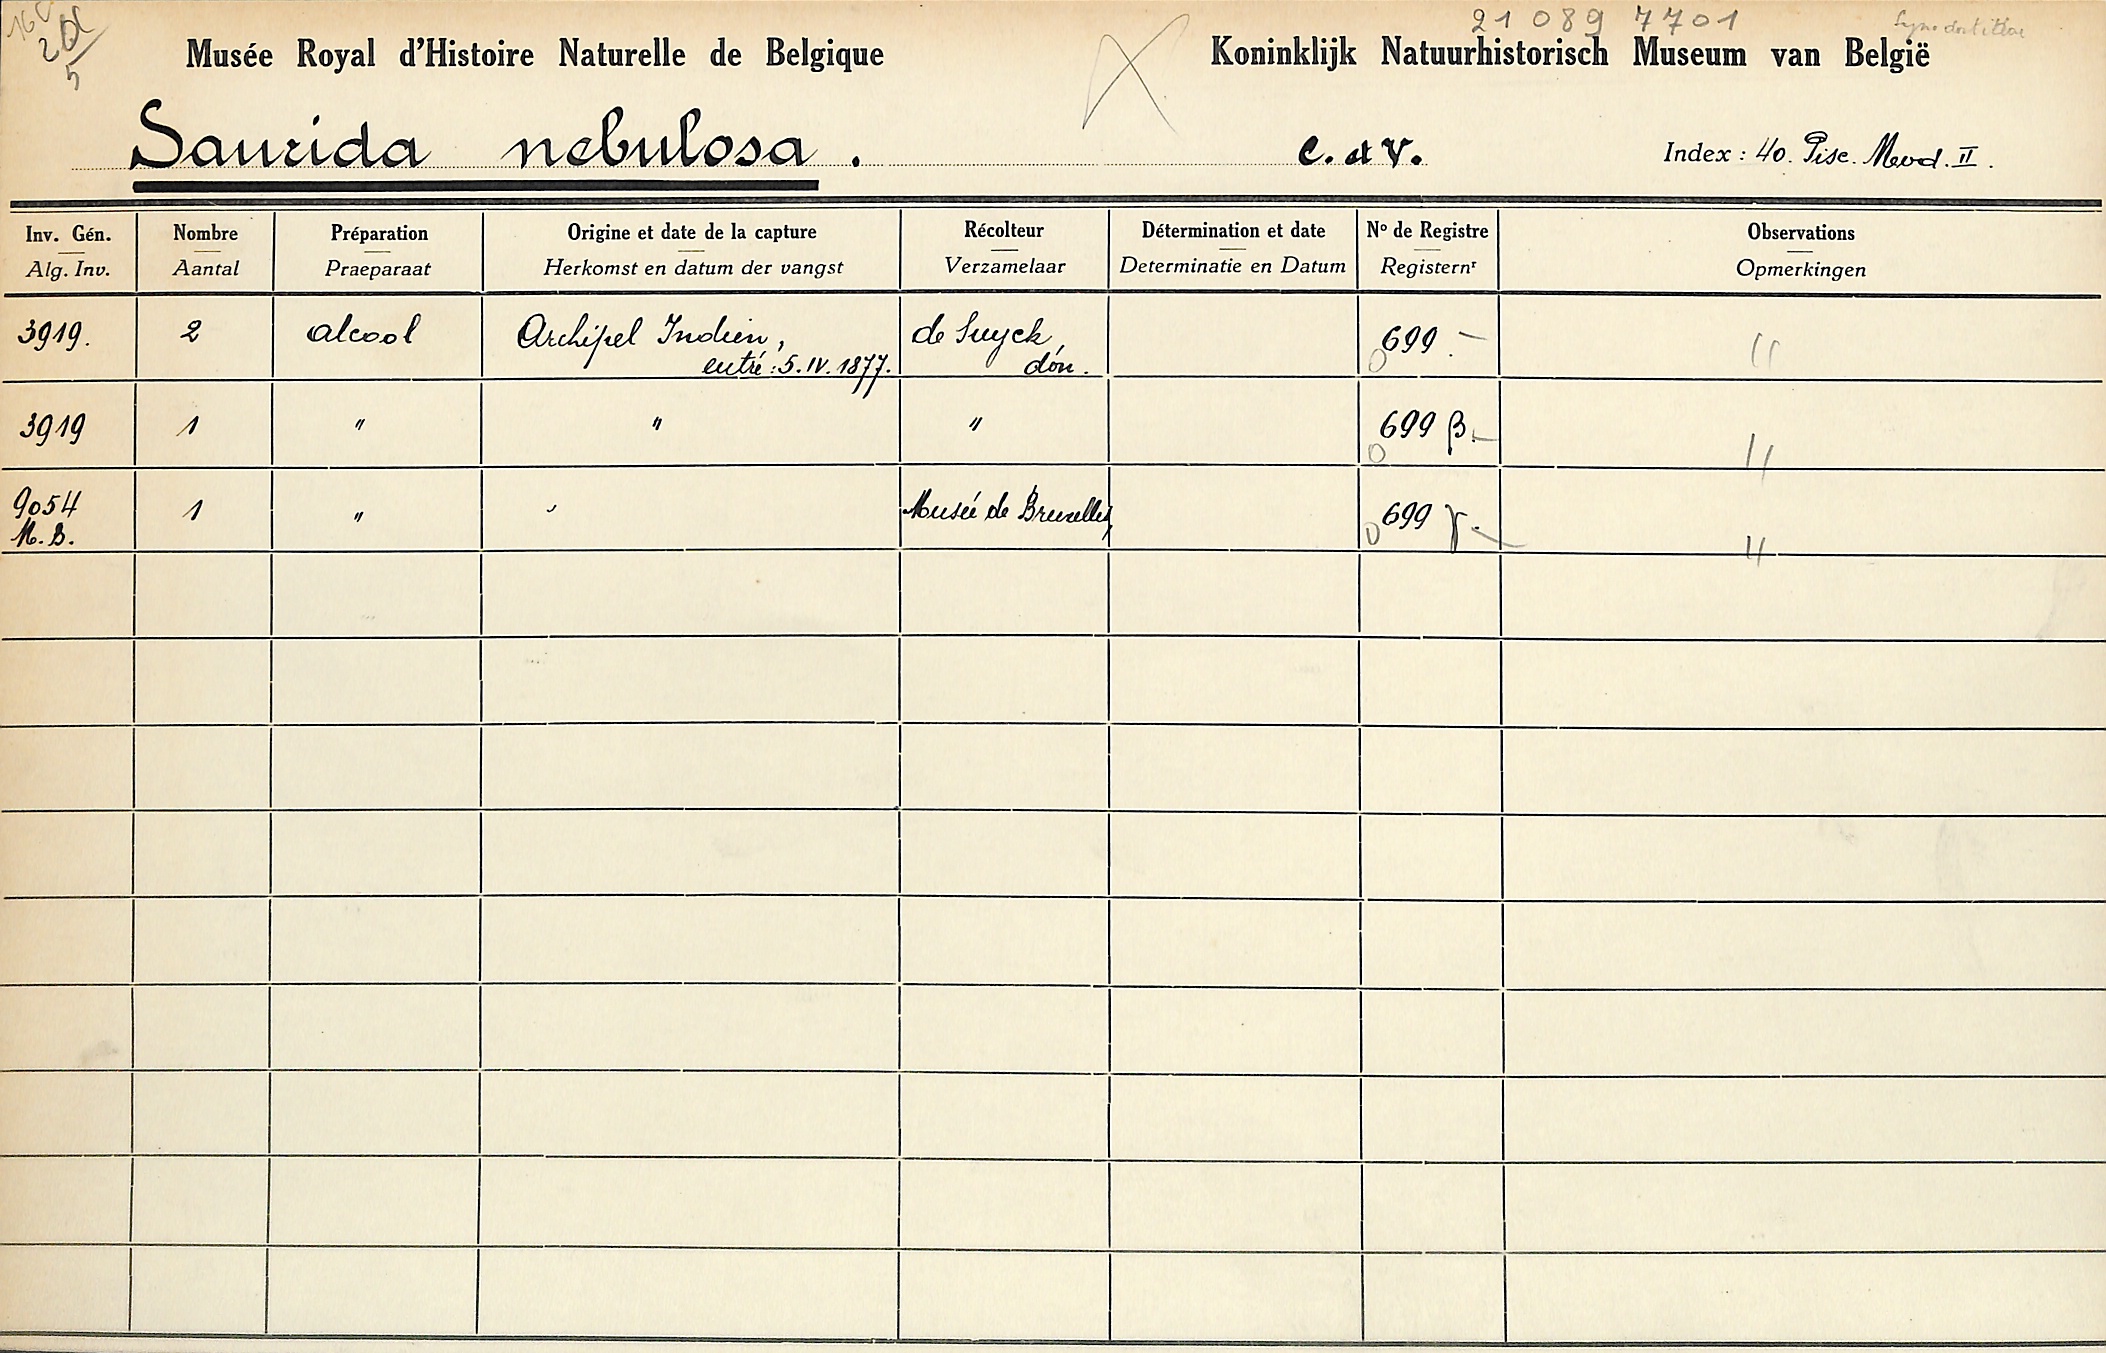 21 089 7701
Musée Royal d'Histoire Naturelle de Belgique
Koninklijk Natuurhistorisch Museum van België
Saurida nebulosa.
C. et V.
Index : 40. Pisc. Merid. II.
Inv. Gén. Nombre Préparation Origine et date de la capture Récolteur Détermination et date Nº de Registre Observations
Alg. Inv. Aantal Praeparaat Herkomst en datum der vangst Verzamelaar Determinatie en Datum Registernʳ Opmerkingen
3919. 2 alcool Archipel Indien, de Suyck, 699.-
entré : 5. IV. 1877. don.
3919 1 " " " 699 β.-
9054 1 " " Musée de Bruxelles 699 γ.-
M.B.